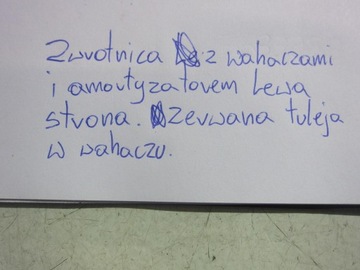 Zwrotnica z wahaczami
i amortyzatorem Lewa
strona. Zerwana tuleja
w wahaczu.